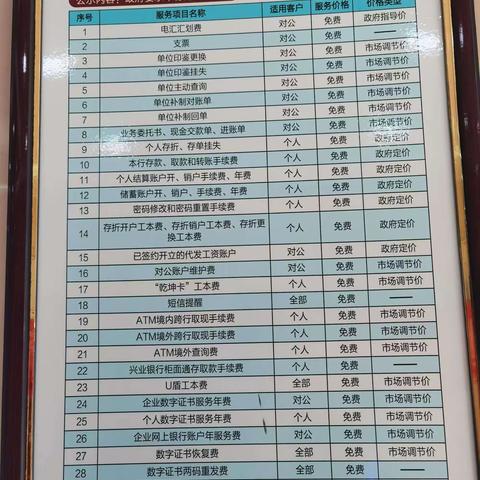 序号 服务项目名称 适用客户 服务价格 价格类型
1 电汇汇划费 对公 免费 政府指导价
2 支票 对公 免费 ——
3 单位印鉴更换 对公 免费 市场调节价
4 单位印鉴挂失 对公 免费 市场调节价
5 单位主动查询 对公 免费 市场调节价
6 单位补制对账单 对公 免费 市场调节价
7 单位补制回单 对公 免费 市场调节价
8 业务委托书、现金交款单、进账单 对公 免费 市场调节价
9 个人存折、存单挂失 个人 免费 政府定价
10 本行存款、取款和转账手续费 个人 免费 政府定价
11 个人结算账户开、销户手续费、年费 个人 免费 政府定价
12 储蓄账户开、销户、手续费、年费 个人 免费 政府定价
13 密码修改和密码重置手续费 个人 免费 政府定价
14 存折开户工本费、存折销户工本费、存折更
换工本费 个人 免费 政府定价
15 已签约开立的代发工资账户 对公 免费 政府定价
16 对公账户维护费 对公 免费 市场调节价
17 “乾坤卡”工本费 个人 免费 市场调节价
18 短信提醒 全部 免费 ——
19 ATM境内跨行取现手续费 个人 免费 市场调节价
20 ATM境外跨行取现手续费 个人 免费 市场调节价
21 ATM境外查询费 个人 免费 市场调节价
22 兴业银行柜面通存取款手续费 个人 免费 ——
23 U盾工本费 全部 免费 市场调节价
24 企业数字证书服务年费 对公 免费 市场调节价
25 个人数字证书服务年费 个人 免费 市场调节价
26 企业网上银行账户年服务费 对公 免费 市场调节价
27 数字证书恢复费 全部 免费 市场调节价
28 数字证书两码重发费 全部 免费 ——